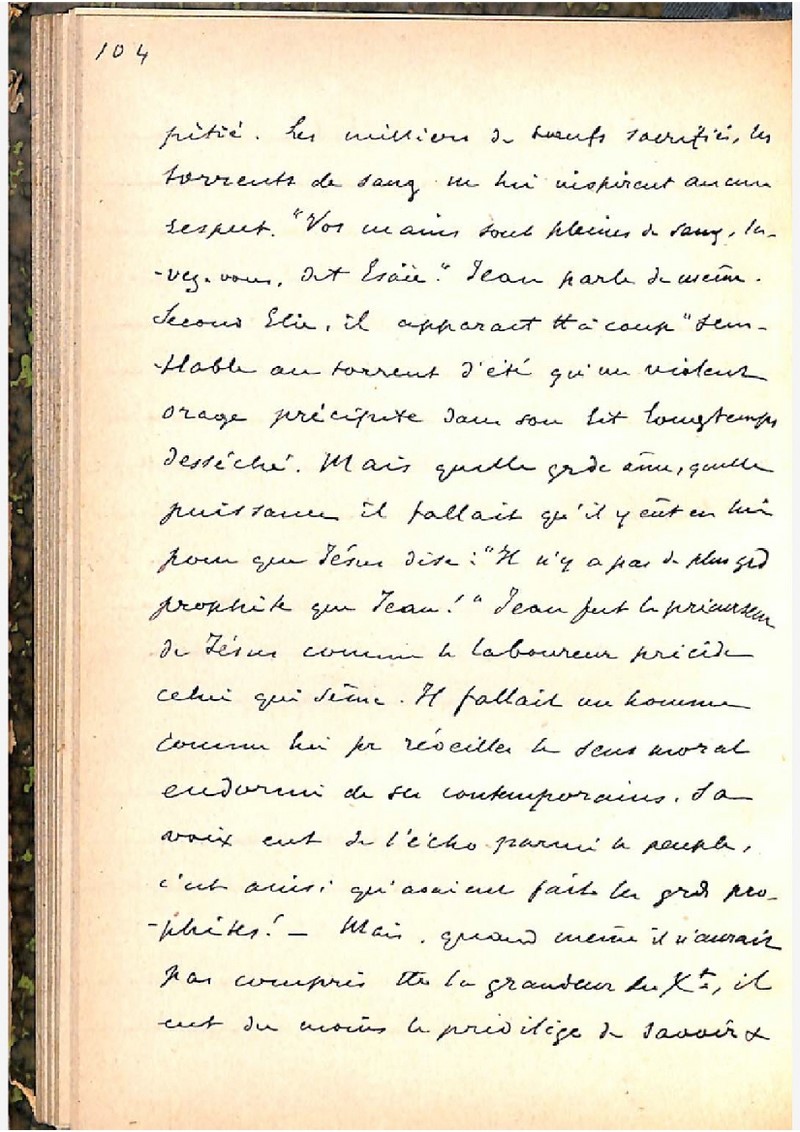 104
pitié. Les milliers de bœufs sacrifiés, les
torrents de sang ne lui inspirent aucun
respect. "Vos mains sont pleines de sang, la-
-vez-vous, dit Esaïe." Jean parle de même.
Second Elie, il apparait tt à coup "sem-
-blable au torrent d'été qu'un violent
orage précipite dans son lit longtemps
desséché. Mais quelle grde âme, quelle
puissance il fallait qu'il y eût en lui
pour que Jésus dise : "Il n'y a pas de plus grd
prophète que Jean!" Jean fut le précurseur
de Jésus comme le laboureur précède
celui qui sème. Il fallait un homme
comme lui pr réveiller le sens moral
endormi de ses contemporains. Sa
voix eut de l'écho parmi le peuple,
c'est ainsi qu'avaient fait les grds pro-
-phètes! — Mais, quand même il n'aurait
pas compris tte la grandeur du Xt, il
eut du moins le privilège de savoir &